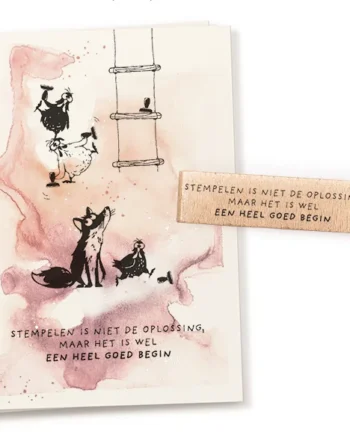 STEMPELEN IS NIET DE OPLOSSING,
MAAR HET IS WEL
EEN HEEL GOED BEGIN
STEMPELEN IS NIET DE
MAAR HET IS WEL
EEN HEEL GOED BEGIN